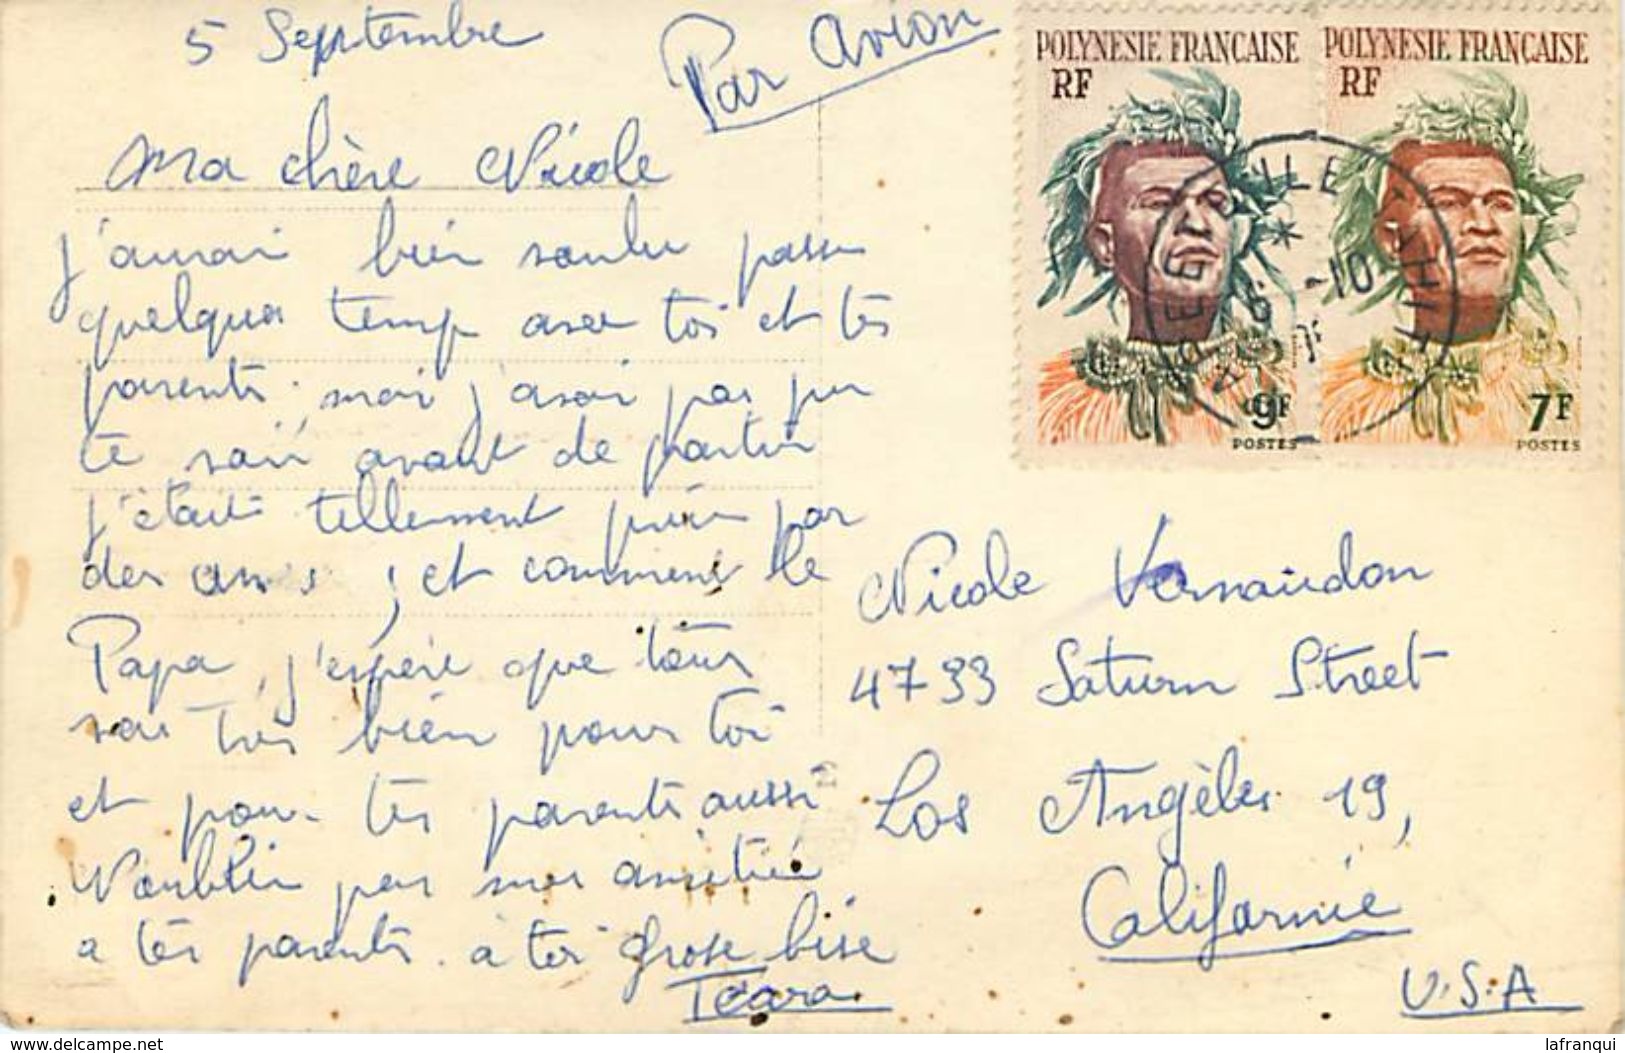 5 Septembre
Par avion
POLYNESIE FRANÇAISE
RF
9F
POSTES
POLYNESIE FRANÇAISE
RF
7F
POSTES
PAPEETE
ILE TAHITI
6 -10
Ma chère Nicole
j'aurai bien voulu passer
quelques temp avec toi et tes
parents. mai j'avai pas pu
te
avant de partir
j'étais tellement par
des et comment le
Papa, j'espère que tous
très bien pour toi
et pour tes parents aussi
N'oublie pas mes amitié
a tes parents. à toi grose bise
Teara
Nicole Vernaudon
4733 Saturn Street
Los Angèles 19,
Californie
U.S.A
delcampe.net
lafranqui